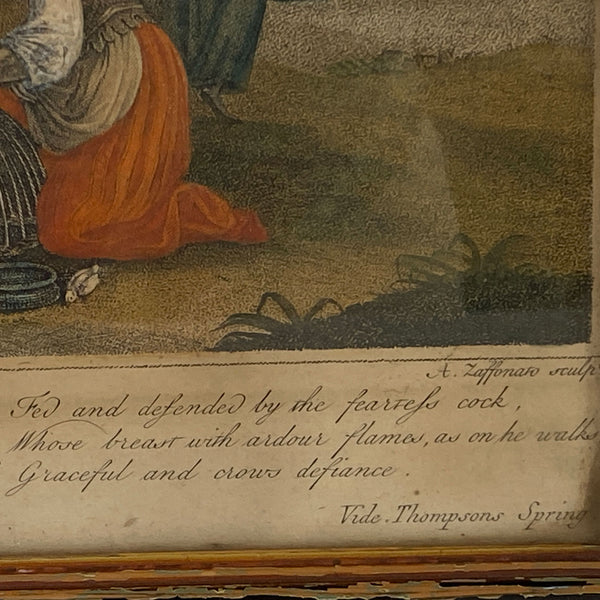 A. Zaffonato sculp.
Fed and defended by the fearless cock,
Whose breast with ardour flames, as on he walks
Graceful and crows defiance.
Vide. Thompsons Spring